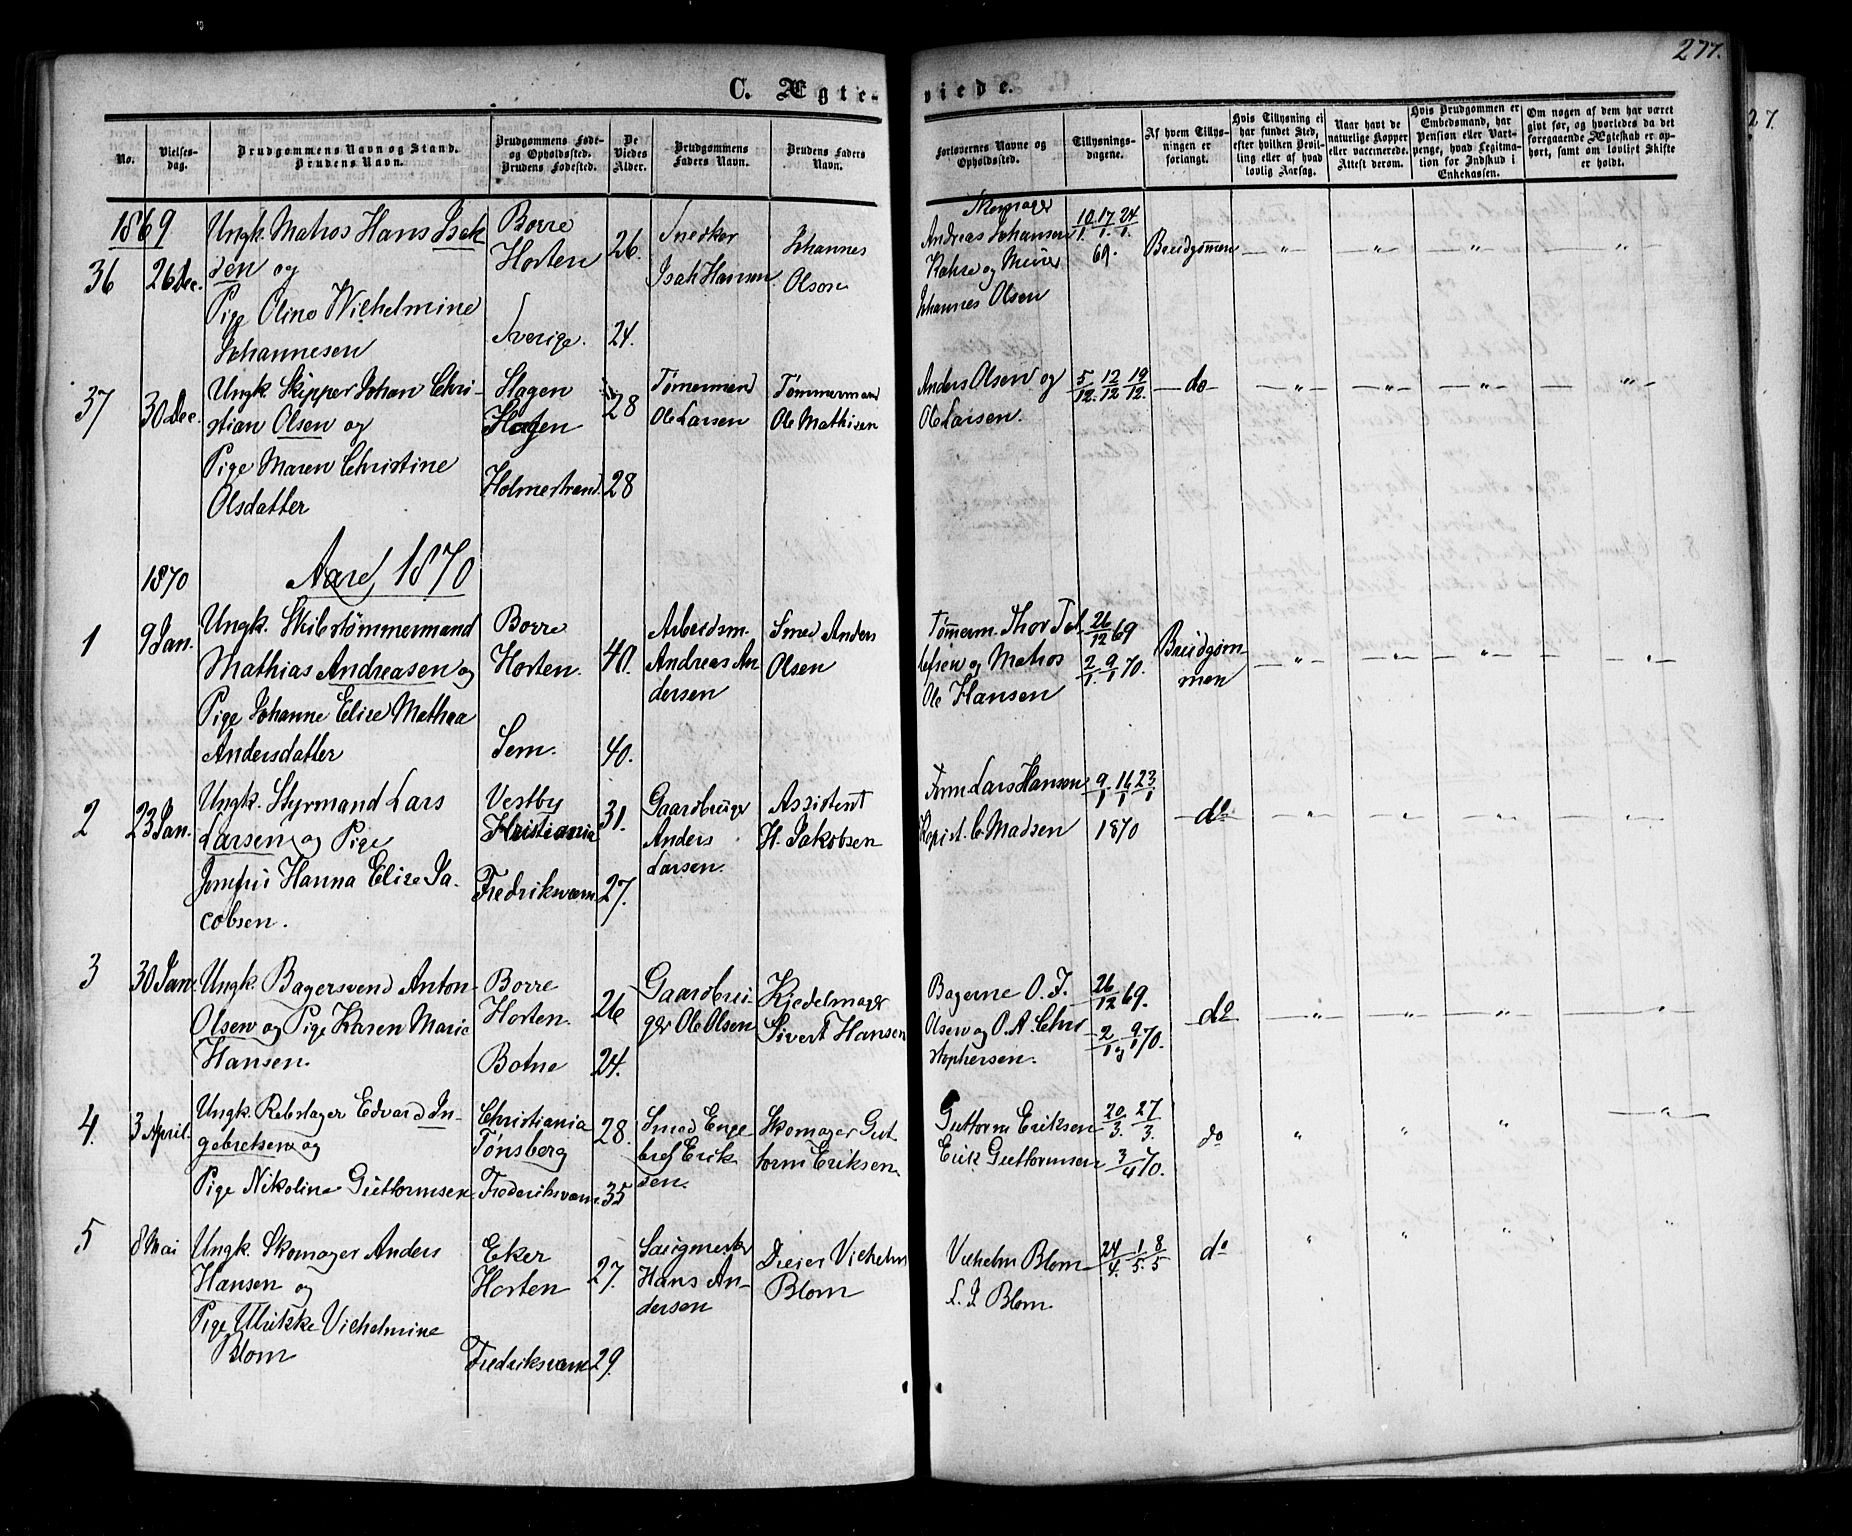 277.
C. Ægte-
viede.
No.
Vielses-
dag.
Brudgommens Navn og Stand.
Brudens Navn.
Brudgommens Føde-
og Opholdssted.
Brudens Fødested.
De
Viedes
Alder.
Brudgommens
Faders Navn.
Brudens Faders
Navn.
Forlovernes Navne og
Opholdssted.
Tillysnings-
dagene.
Af hvem Tillys-
ningen er
forlangt.
Hvis Tillysning ei
har fundet Sted,
efter hvilken Bevil-
ling eller af hvad
lovlig Aarsag.
Naar havt de
naturlige Kopper
eller vaccinerede.
Attest derom.
Hvis Brudgommen er
Embedsmand, har
Pension eller Vart-
penge, hvad Legitima-
tion for Indskud i
Enkekassen.
Om nogen af dem har været
givt før, og hvorledes da det
foregaaende Ægteskab er op-
hørt, samt om lovligt Skifte
er holdt.
1869
36 26 Dec.
Ungk. Matros Hans Isak
sen og
Pige Oline Wilhelmine
Johannesen
Borre
Horten
Sverige.
26.
24.
Snedker
Isak Hansen
Johannes
Olson
Andreas Johansen
og
Johannes Olsen
10/1. 17/1. 24/1.
69.
Brudgommen
37 30 Dec.
Ungk. Skipper Johan Chri-
stian Olsen og
Pige Maren Christine
Olsdatter
Slagen
Holmestrand.
28
28
Tømermand
Ole Larsen
Tømmermand
Ole Mathisen
Anders Olsen og
Ole Larsen.
5/12. 12/12 19/12.
do
1870
Aaret 1870
1 9 Jan.
Ungk. Skibstømmermand
Mathias Andreasen og
Pige Johanne Elise Mathea
Andersdatter
Borre
Horten.
Sem.
40.
40.
Arbeidsm.
Andreas An
dersen
Smed Anders
Olsen
Tømerm. Thor Tol
lefsen og Matros
Ole Hansen
26/12 69
2/1. 9/1 70.
Brudgom
men
2 23 Jan.
Ungk. Styrmand Lars
Larsen og Pige
Jomfru Hanna Elise Ja-
cobsen.
Vestby
Christiania
Fredriksværn.
31.
27.
Gaardbruger
Anders
Larsen.
Assistent
H. Jakobsen
Lars Hansen
C. Madsen
9/1 16/1 23/1
1870
do
3 30 Jan.
Ungk. Bagersvend Anton
Olsen og Pige Karen Marie
Hansen.
Borre
Horten.
Botne
26
24.
Gaardbru-
ger Ole Olsen
Kjedelmager
Sivert Hansen
Bagerne O. J.
Olsen og O. A. Chri
stophersen.
26/12 69.
2/1 og 9/1 70.
do
4. 3 April.
Ungk. Rebslager Edvard In-
gebretsen og
Pige Nikoline Guttormsen
Christiania
Tønsberg
Frederiksværn.
28.
35
Smed Enge
bret Erik
sen.
Skomager Gut
torm Eriksen
Guttorm Eriksen
Erik Guttormsen
20/3. 27/3.
3/4 70.
do
5 8 Mai
Ungk. Skomager Anders
Hansen og
Pige Ulrikke Vilhelmine
Blom
Eker
Horten
Fredriksværn
27.
29.
Saugmester
Hans An-
dersen
Dreier Vilhelm
Blom
Vilhelm Blom
L. J. Blom.
24/4. 1/5. 8/5
do